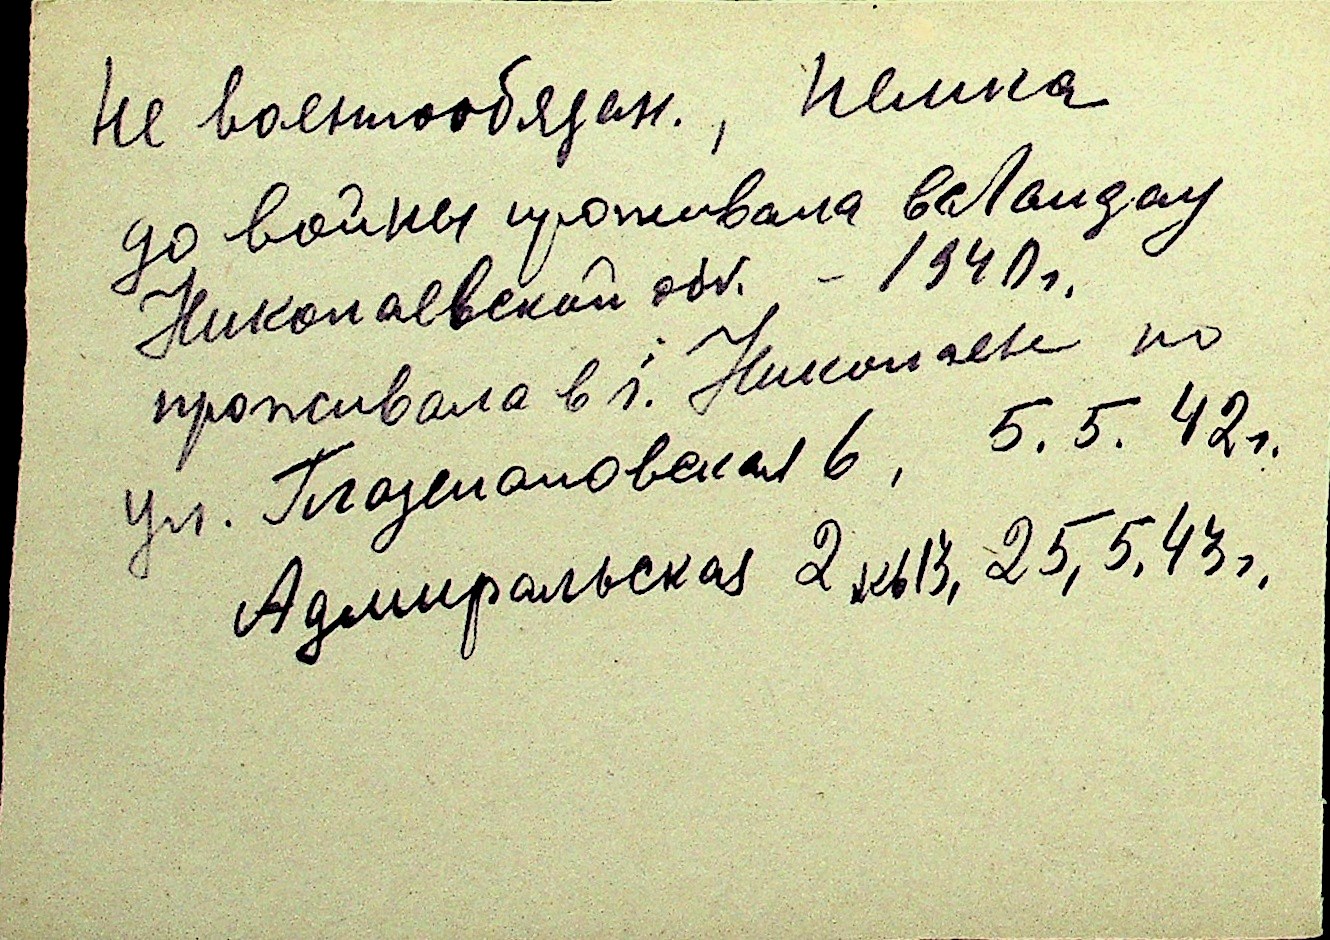 Не военнообязан., немка
до войны проживала в с Ландау
Николаевской обл. - 1940 г.
проживала в г. Николаеве по
ул. 6, 5.5.42 г.
Адмиральская 2 кв 13, 25,5,43 г,